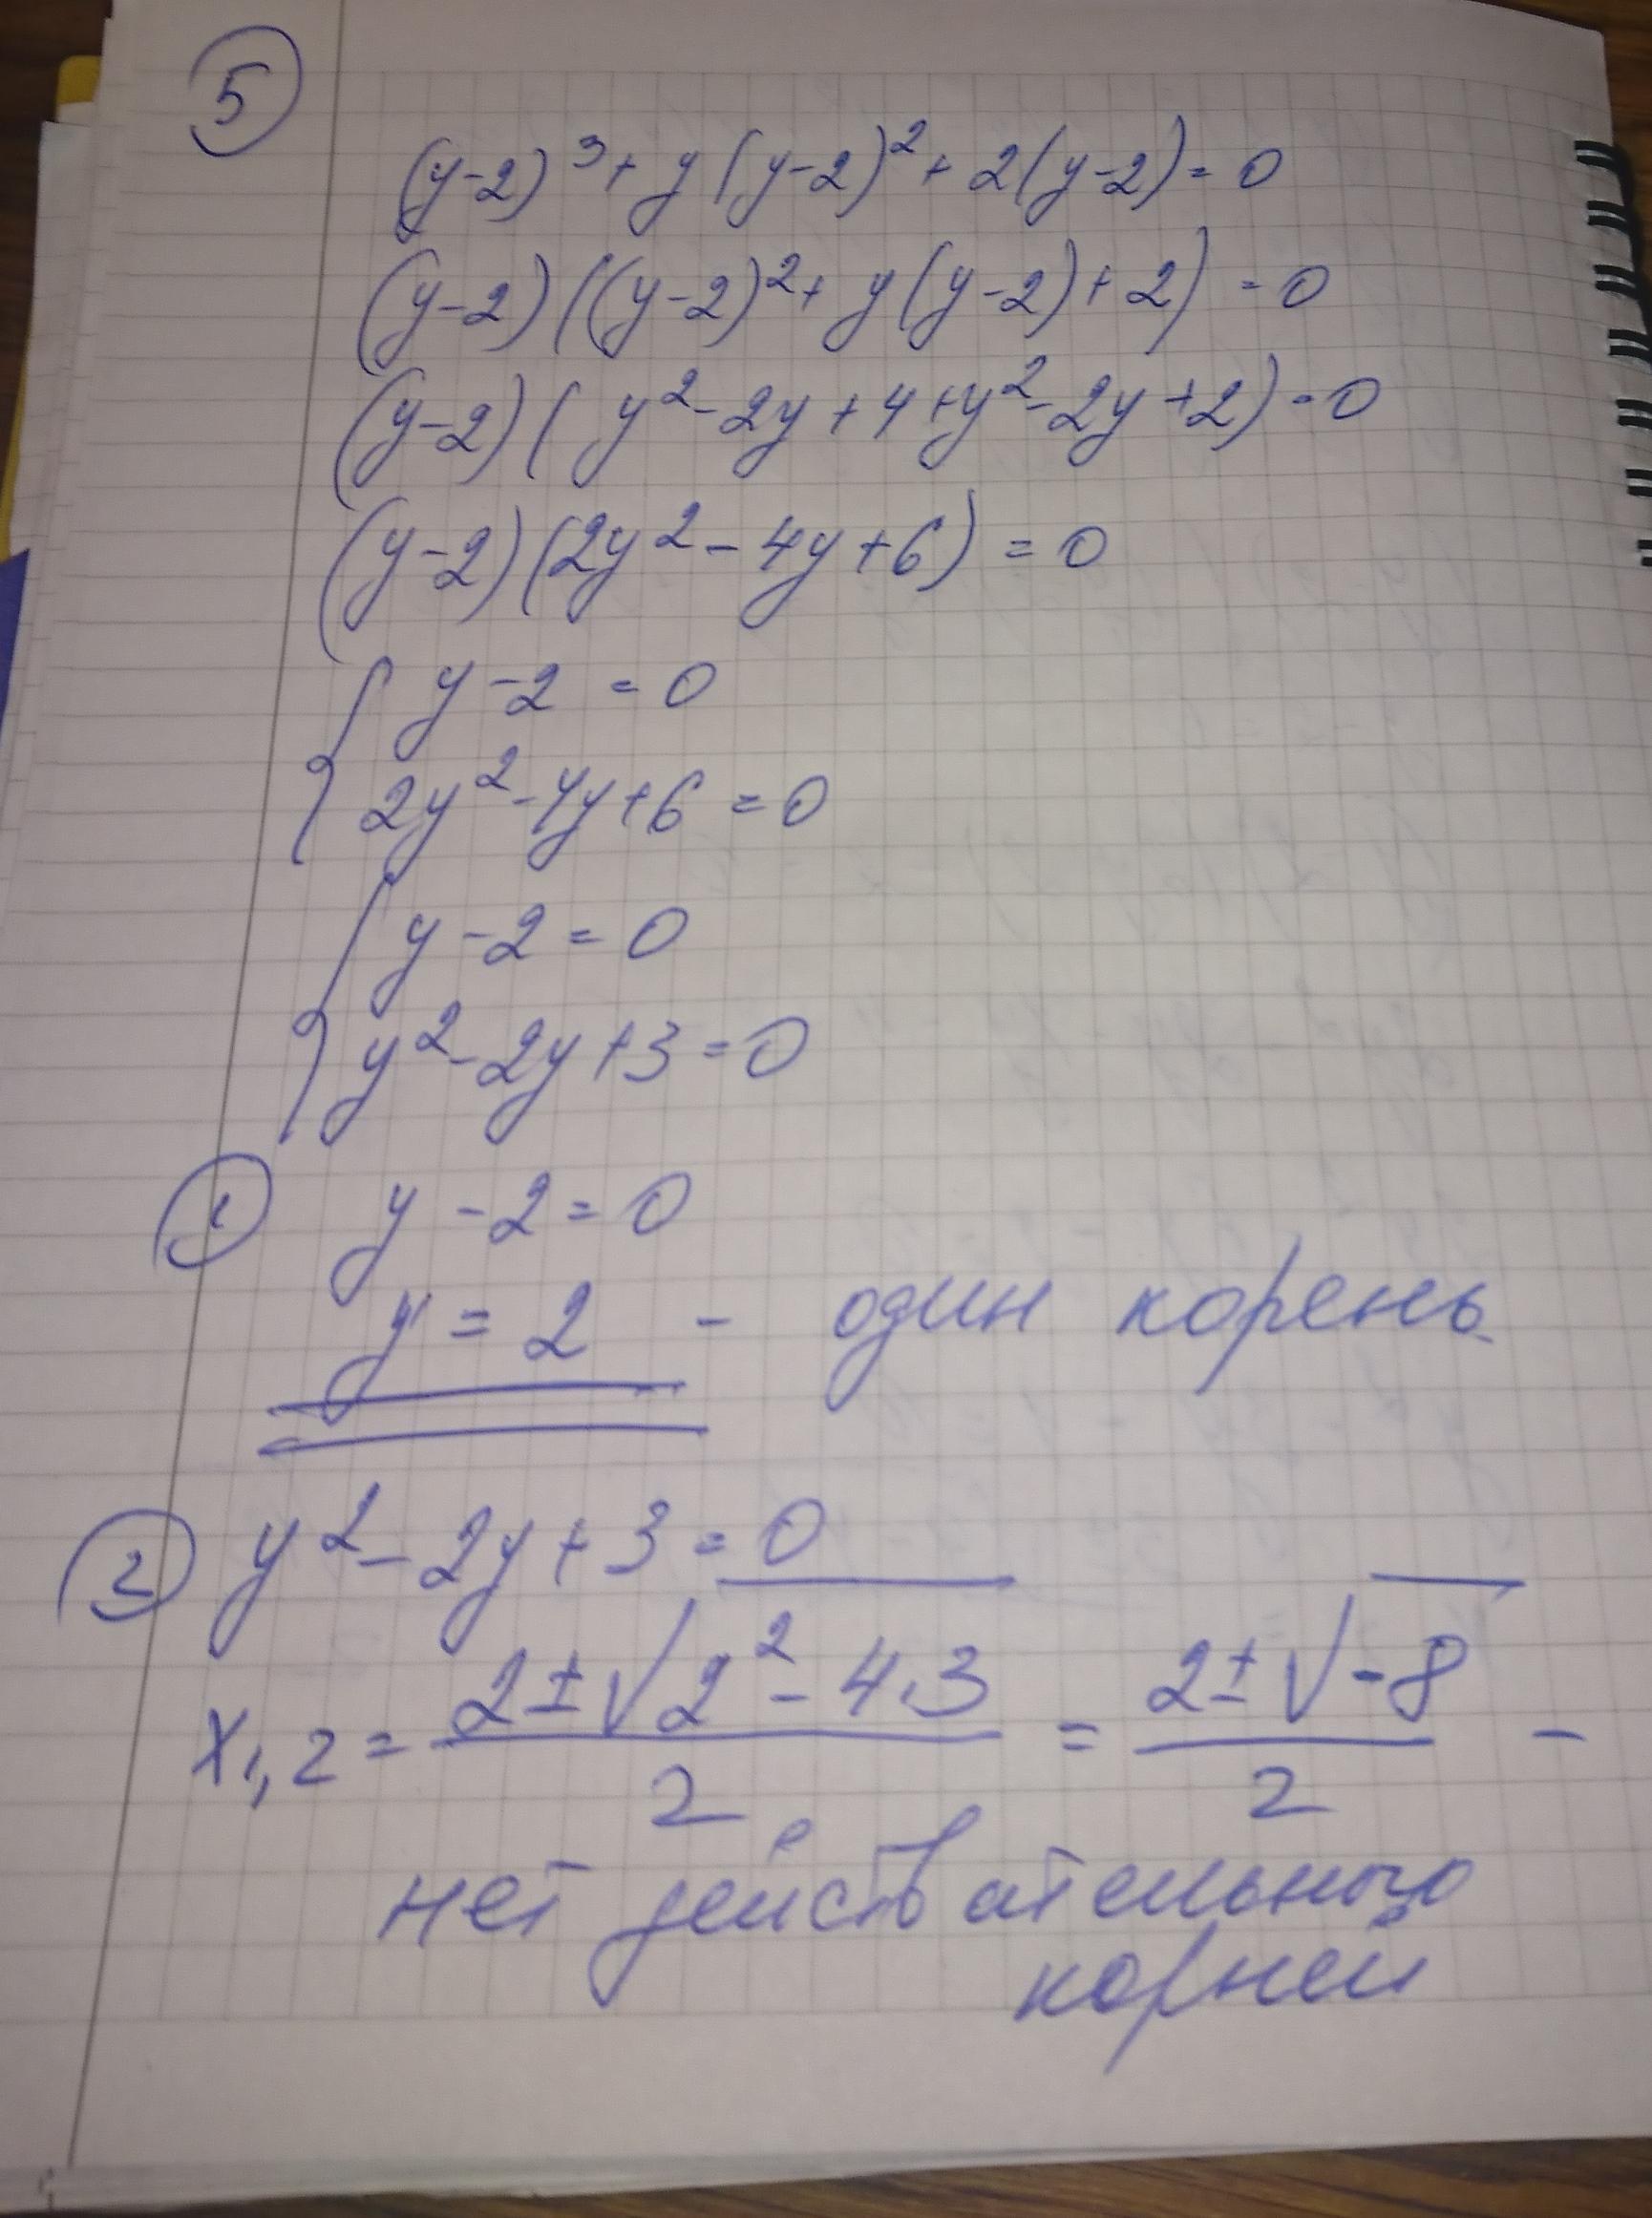 5
(y-2)³ + y(y-2)² + 2(y-2) = 0
(y-2)((y-2)² + y(y-2) + 2) = 0
(y-2)(y² - 2y + 4 + y² - 2y + 2) = 0
(y-2)(2y² - 4y + 6) = 0
{ y - 2 = 0
2y² - 4y + 6 = 0
{ y - 2 = 0
y² - 2y + 3 = 0
1 y - 2 = 0
y = 2 - один корень
2 y² - 2y + 3 = 0
x1,2 = (2 ± √(2² - 4·3))/2 = (2 ± √(-8))/2 -
нет действительного
корней